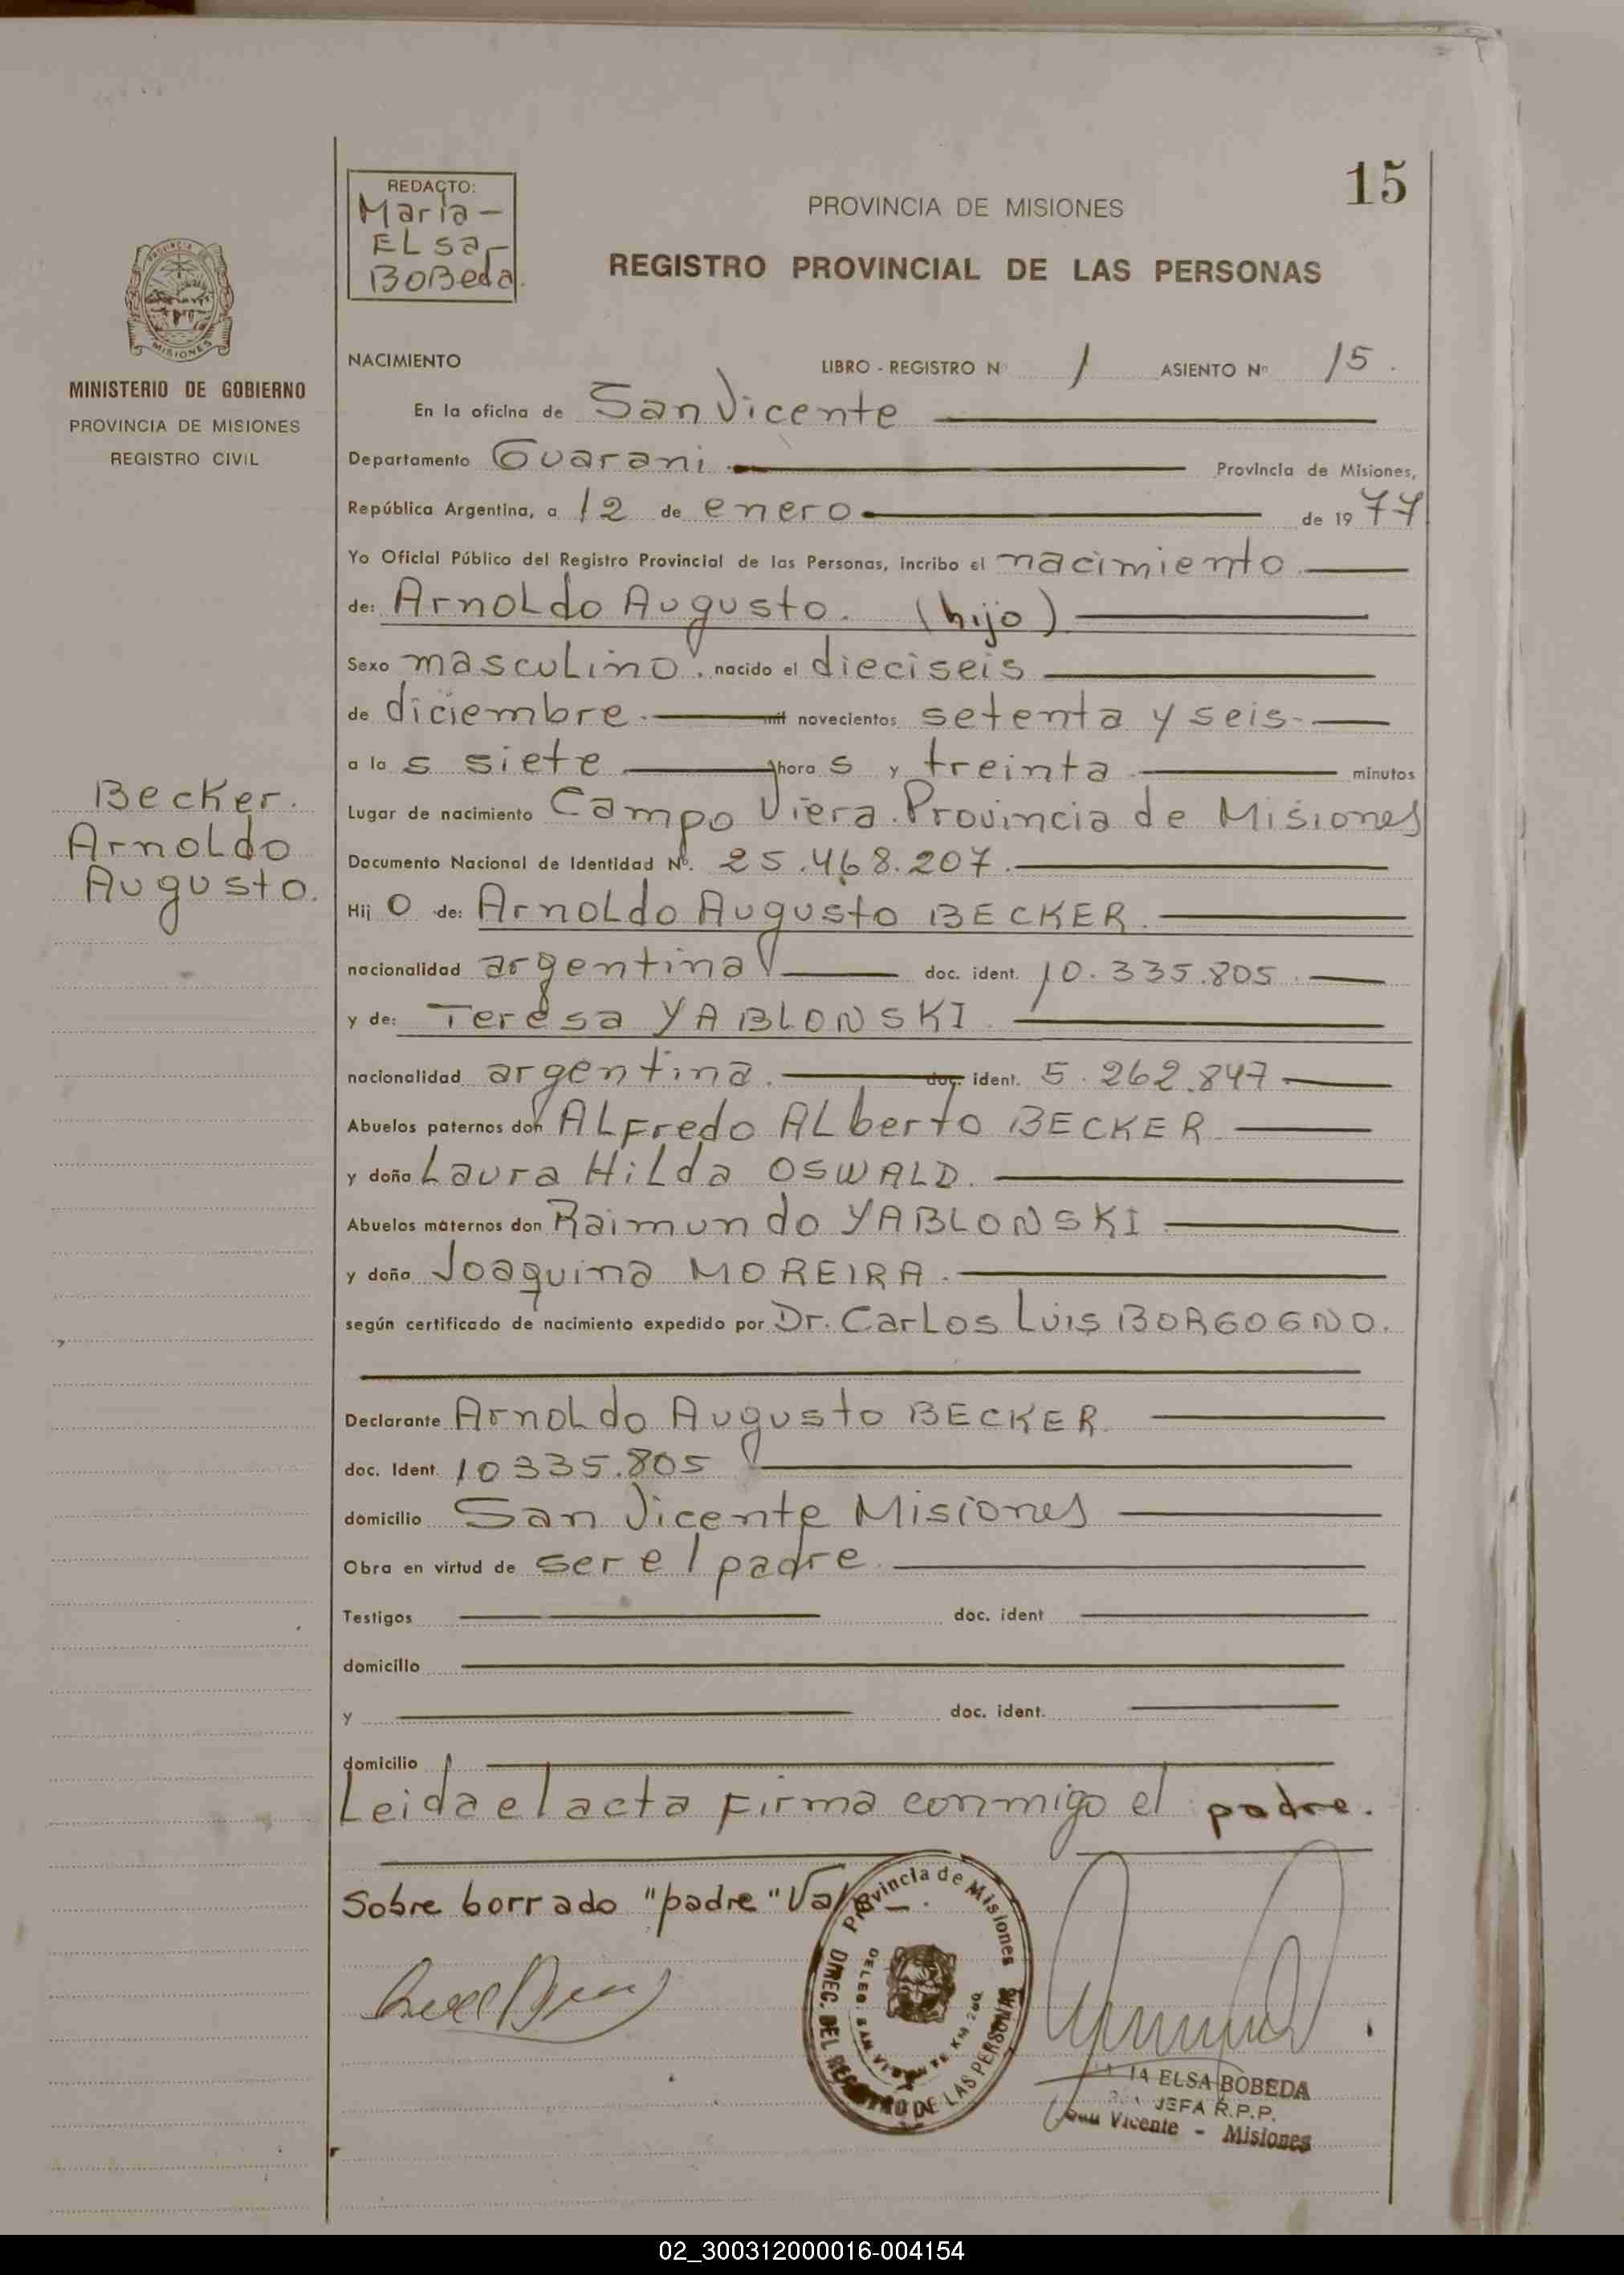 15
REDACTO:
Maria-
ELsa-
BoBeda.
PROVINCIA DE MISIONES
REGISTRO PROVINCIAL DE LAS PERSONAS
PROVINCIA DE
MISIONES
MINISTERIO DE GOBIERNO
PROVINCIA DE MISIONES
REGISTRO CIVIL
NACIMIENTO LIBRO - REGISTRO Nº 1 ASIENTO Nº 15.
En la oficina de San Vicente
Departamento Guarani. Provincia de Misiones,
República Argentina, a 12 de enero de 1977
Yo Oficial Público del Registro Provincial de las Personas, incribo el nacimiento
de: Arnoldo Augusto. (hijo)
Sexo masculino. nacido el dieciseis
de diciembre. mil novecientos setenta y seis.
a las siete horas y treinta minutos
Lugar de nacimiento Campo Viera. Provincia de Misiones
Documento Nacional de Identidad Nº. 25.468.207.
Hijo de: Arnoldo Augusto BECKER.
nacionalidad argentina doc. ident. 10.335.805.
y de: Teresa YABLONSKI
nacionalidad argentina. doc. ident. 5.262.847
Abuelos paternos don ALFredo ALberto BECKER
y doña Laura HiLda OSWALD.
Abuelos maternos don Raimundo YABLONSKI
y doña Joaquina MOREIRA.
según certificado de nacimiento expedido por Dr. CarLos Luis BORGOGNO.
Declarante Arnoldo Augusto BECKER
doc. Ident. 10335.805
domicilio San Vicente Misiones
Obra en virtud de ser el padre.
Testigos doc. ident
domicilio
y doc. ident.
domicilio
Leida el acta firma conmigo el padre.
Sobre borrado "padre" Vale.
Becker.
Arnoldo
Augusto.
Provincia de Misiones
DIREC. DEL REGISTRO DE LAS PERSONAS
DELEG. SAN VICENTE KM 260
ELSA BOBEDA
JEFA R.P.P.
San Vicente - Misiones
02_300312000016-004154